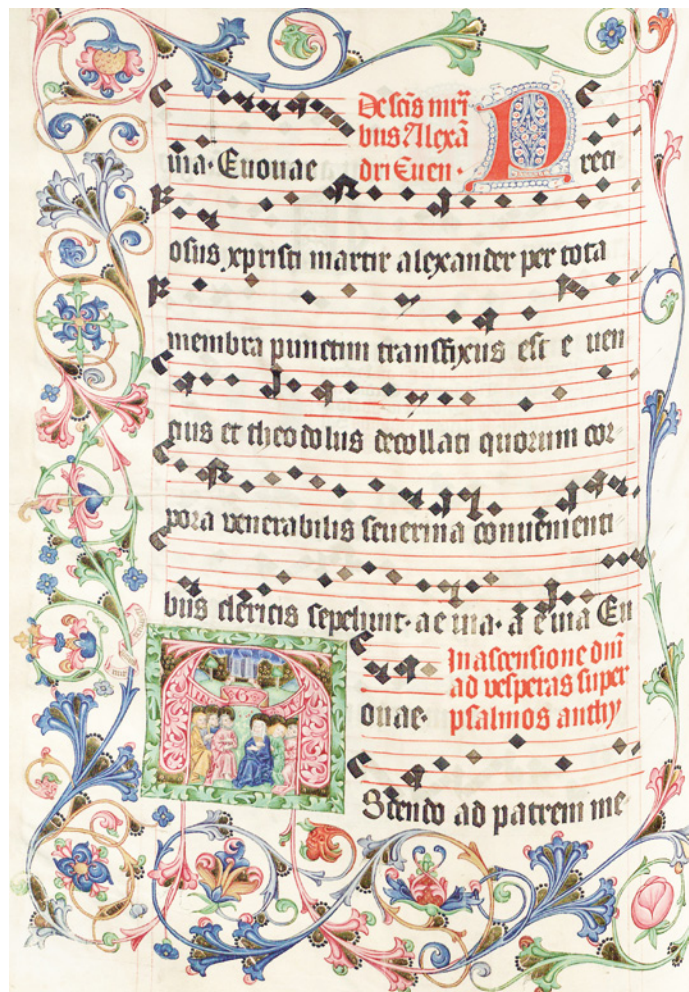 De scīs mrī
bus Alexā
uia· Euouae dri Euen· Preci
osus xpristi martir alexander per tota
membra punctim transfixus est e uen
cius et theodolus decollati quorum cor-
pora venerabilis seuerina conuenienti
bus clericis sepelunt· ae uia· a e uia Eu
In ascensione dnī
ad vesperas super
ouae· psalmos anthy
AScendo ad patrem me-